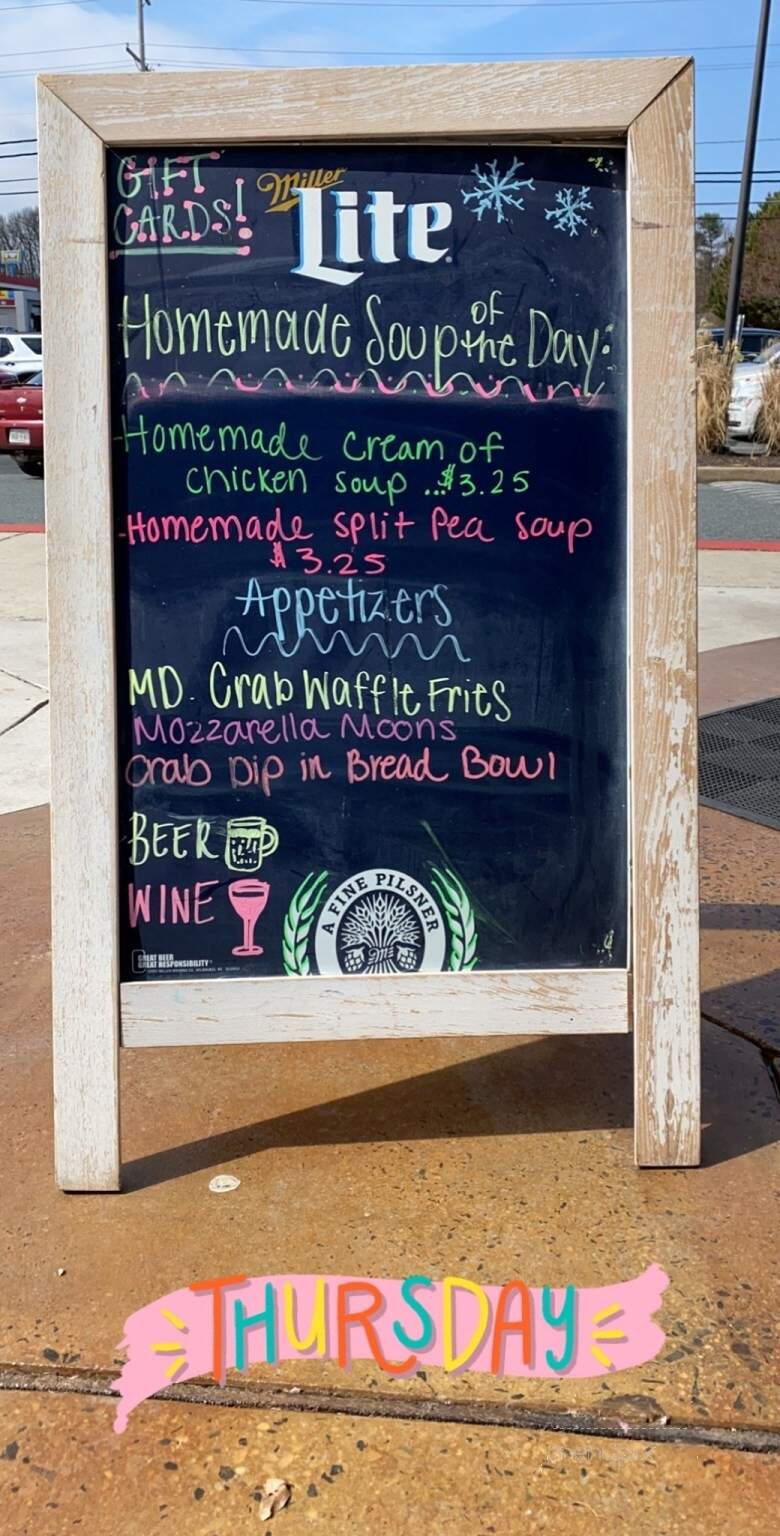 GIFT
CARDS!
Miller
Lite
Homemade Soup of the Day:
-Homemade cream of
chicken soup ...$3.25
-Homemade split Pea soup
$3.25
Appetizers
MD. Crab Waffle Fries
Mozzarella Moons
Crab Dip in Bread Bowl
BEER
WINE
A FINE PILSNER
GREAT BEER
GREAT RESPONSIBILITY
THURSDAY